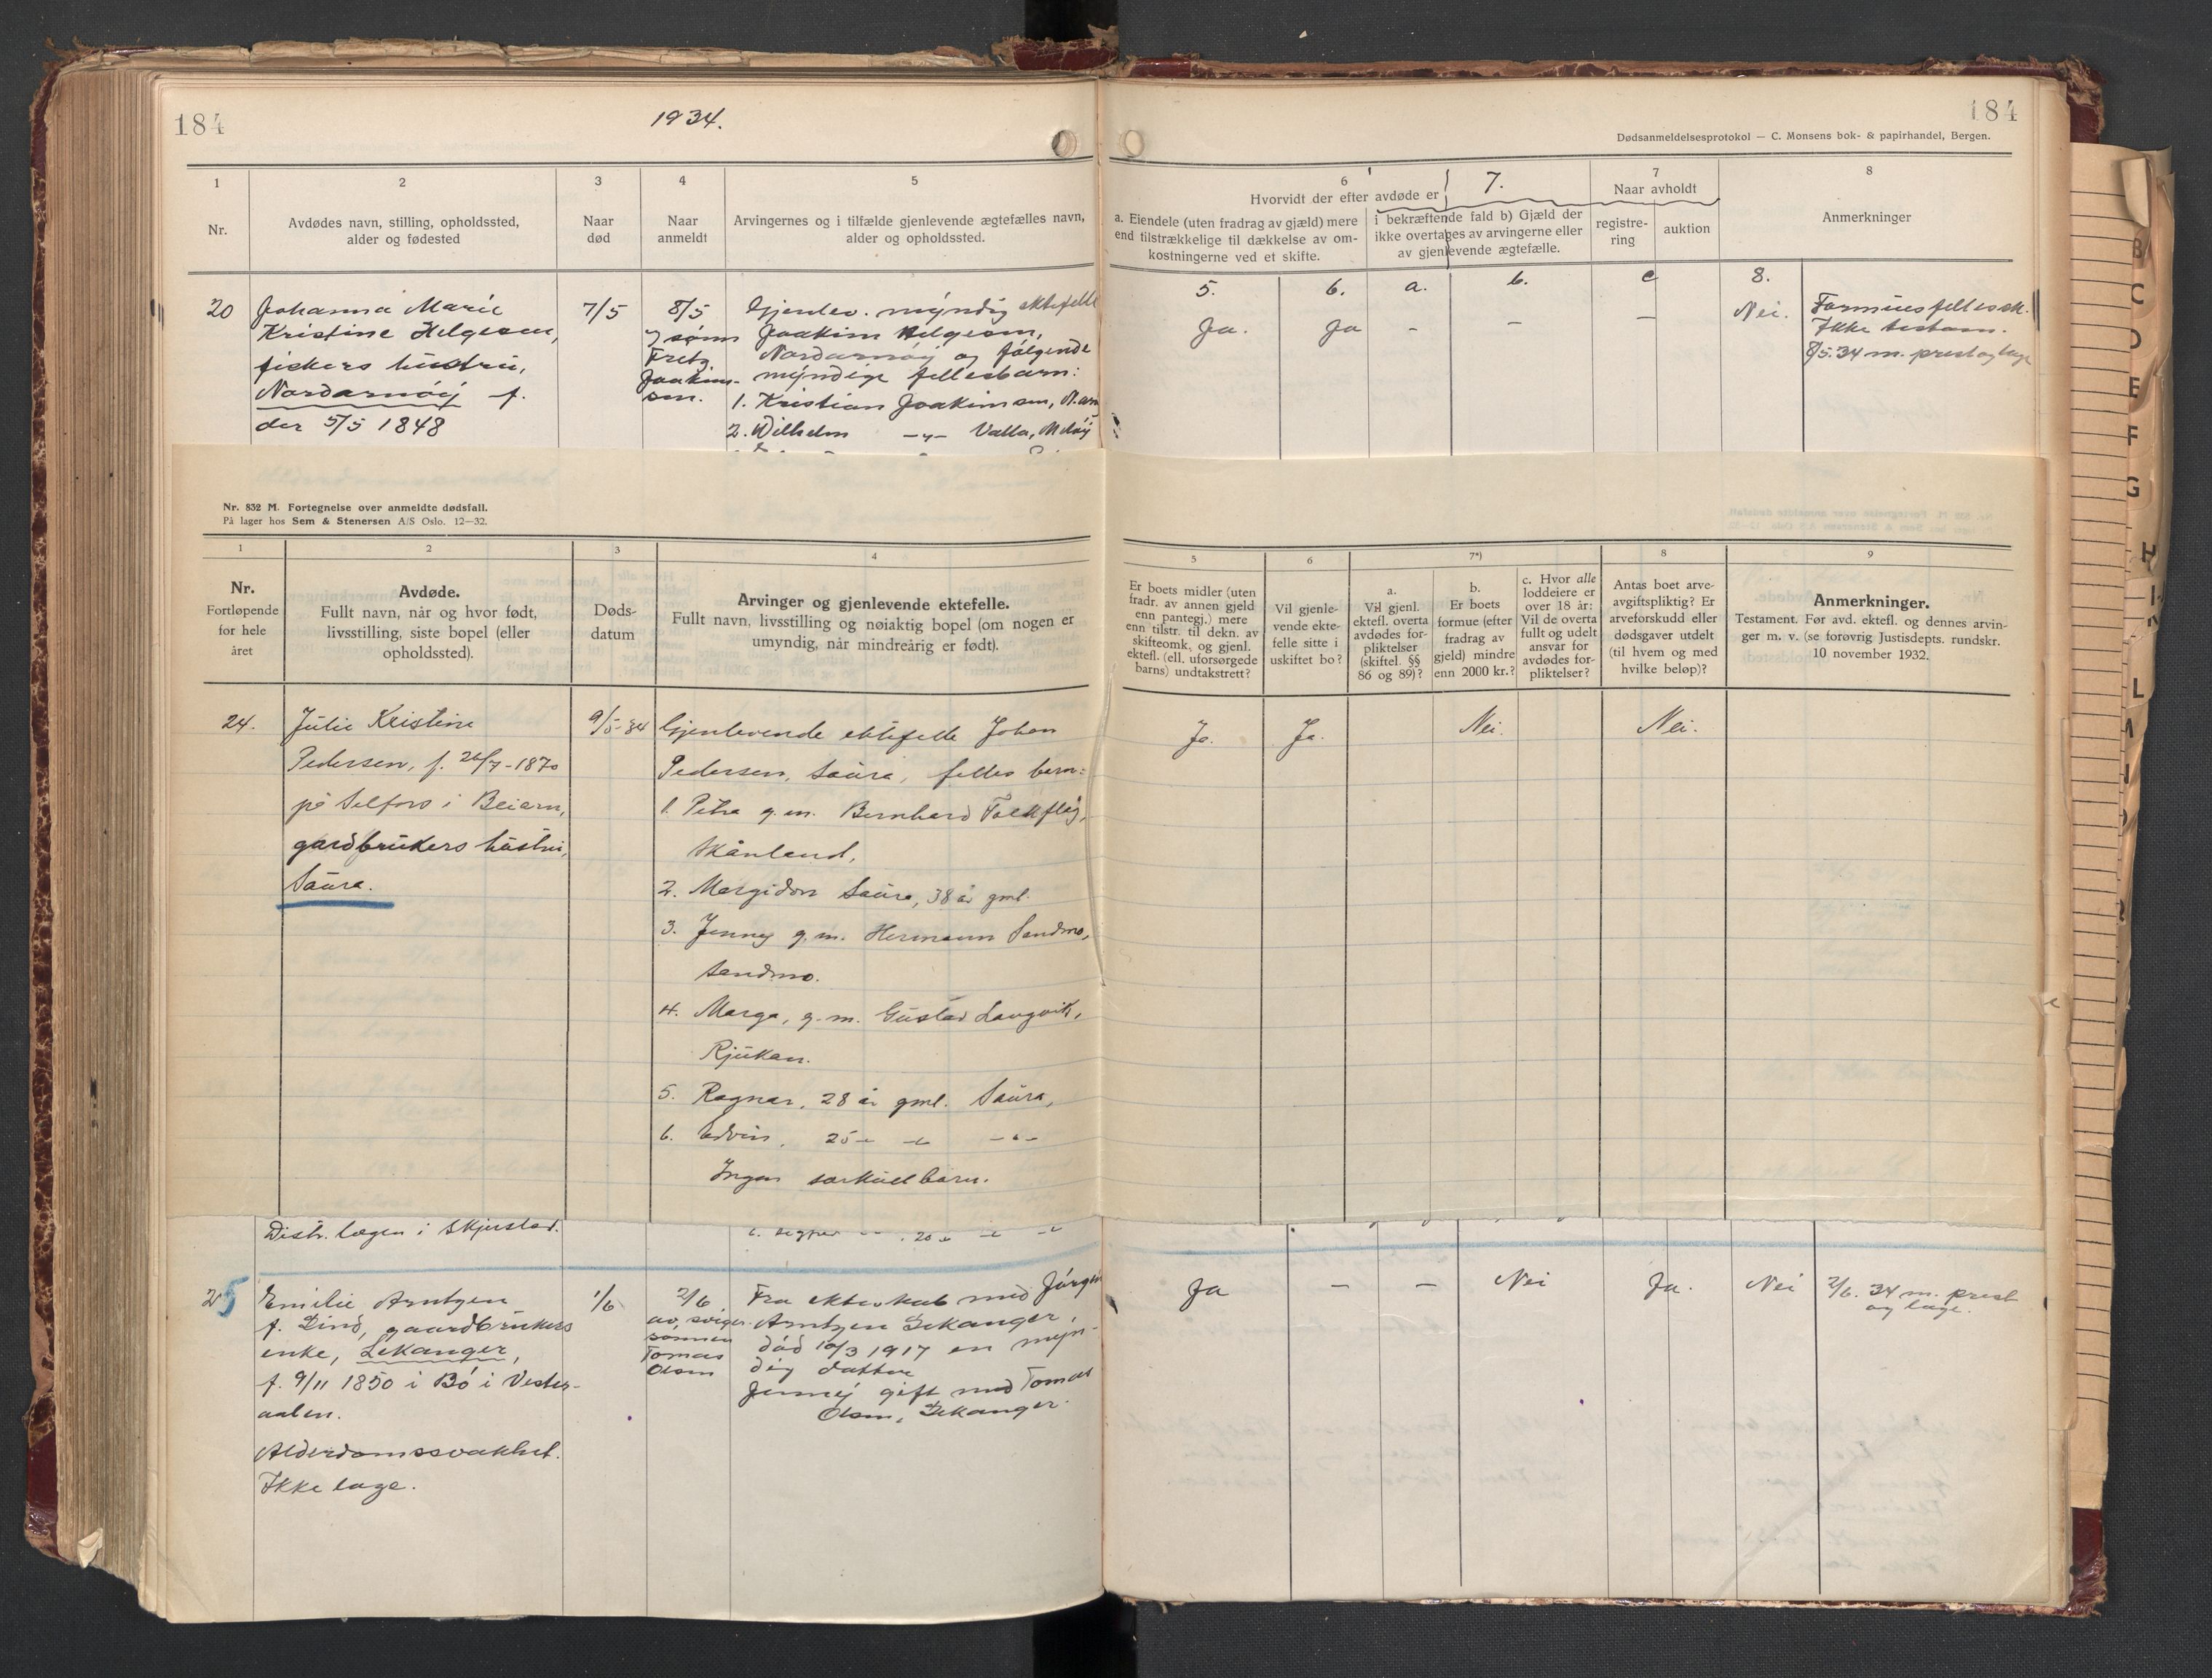 184
1934.
184
Dødsanmeldelsesprotokol — C. Monsens bok- & papirhandel, Bergen.
1
2
3
4
5
6
7
8
Nr.
Avdødes navn, stilling, opholdssted,
alder og fødested
Naar
død
Naar
anmeldt
Arvingernes og i tilfælde gjenlevende ægtefælles navn,
alder og opholdssted.
Hvorvidt der efter avdøde er
7.
a. Eiendele (uten fradrag av gjæld) mere
end tilstrækkelige til dækkelse av om-
kostningerne ved et skifte.
i bekræftende fald b) Gjæld der
ikke overtages av arvingerne eller
av gjenlevende ægtefælle.
Naar avholdt
registre-
ring
auktion
Anmerkninger
5.
6.
a.
b.
c
8.
20
Johanna Marie
Kristine Helgesen,
fiskers hustru,
Nordarnøy f.
der 5/5 1848
7/5
8/5
sønn
Fretz
Joakim-
sen.
Gjenlev. myndig ektefelle
Joakim Helgesen,
Nordarnøy og følgende
myndige fellesbarn:
1. Kristian Joakimsen, N.arn
2. Wilhelm -"- Valla, Meløy
Ja.
Ja
-
-
-
Nei.
Formuesfellessk.
Ikke testam.
8/5.34 m. prest og lege
Nr. 832 M. Fortegnelse over anmeldte dødsfall.
På lager hos Sem & Stenersen A/S Oslo. 12—32.
1
2
3
4
5
6
7*)
8
9
Nr.
Fortløpende
for hele
året
Avdøde.
Fullt navn, når og hvor født,
livsstilling, siste bopel (eller
opholdssted).
Døds-
datum
Arvinger og gjenlevende ektefelle.
Fullt navn, livsstilling og nøiaktig bopel (om nogen er
umyndig, når mindreårig er født).
Er boets midler (uten
fradr. av annen gjeld
enn pantegj.) mere
enn tilstr. til dekn. av
skifteomk. og gjenl.
ektefl. (ell. uforsørgede
barns) undtakstrett?
Vil gjenle-
vende ekte-
felle sitte i
uskiftet bo?
a.
Vil gjenl.
ektefl. overta
avdødes for-
pliktelser
(skiftel. §§
86 og 89)?
b.
Er boets
formue (efter
fradrag av
gjeld) mindre
enn 2000 kr.?
c. Hvor alle
loddeiere er
over 18 år:
Vil de overta
fullt og udelt
ansvar for
avdødes for-
pliktelser?
Antas boet arve-
avgiftspliktig? Er
arveforskudd eller
dødsgaver utdelt
(til hvem og med
hvilke beløp)?
Anmerkninger.
Testament. Før avd. ektefl. og dennes arvin-
ger m. v. (se forøvrig Justisdepts. rundskr.
10 november 1932.
24.
Julie Kristine
Pedersen, f. 26/7-1870
på Selfors i Beiarn,
gardbrukers hustru,
Saura.
9/5-34
Gjenlevende ektefelle Johan
Pedersen, Saura, felles barn:
1. Petra g.m. Bernhard
Skånland.
2. Margidon Saura, 38 år gml.
3. Jenny g.m. Hermann Sandmo,
Sandmo.
4. Marga, g.m. Gustav Langvik,
Rjukan.
5. Ragnar, 28 år gml. Saura,
6. Edvin, 25 -"- -"- -"-
Ingen særkullbarn.
Ja.
Ja.
Nei.
Nei.
Distr. lægen i Skjerstad.
25
Emilie Arntzen
f. Lind, gaardbrukers
enke, Lekanger,
f. 9/11 1850 i Bø i Vester-
aalen.
Alderdomssvakhet.
Ikke læge.
1/6
2/6
av sviger-
sønnen
Tomas
Olsen
Fra ekteskab med Jørgen
Arntzen Lekanger,
død 10/3 1917 en myn-
dig datter
Jenny gift med Tomas
Olsen, Lekanger.
Ja
-
-
Nei
Ja.
Nei
2/6. 34 m. prest
og læge.
B
C
D
E
F
G
H
I-
K
L